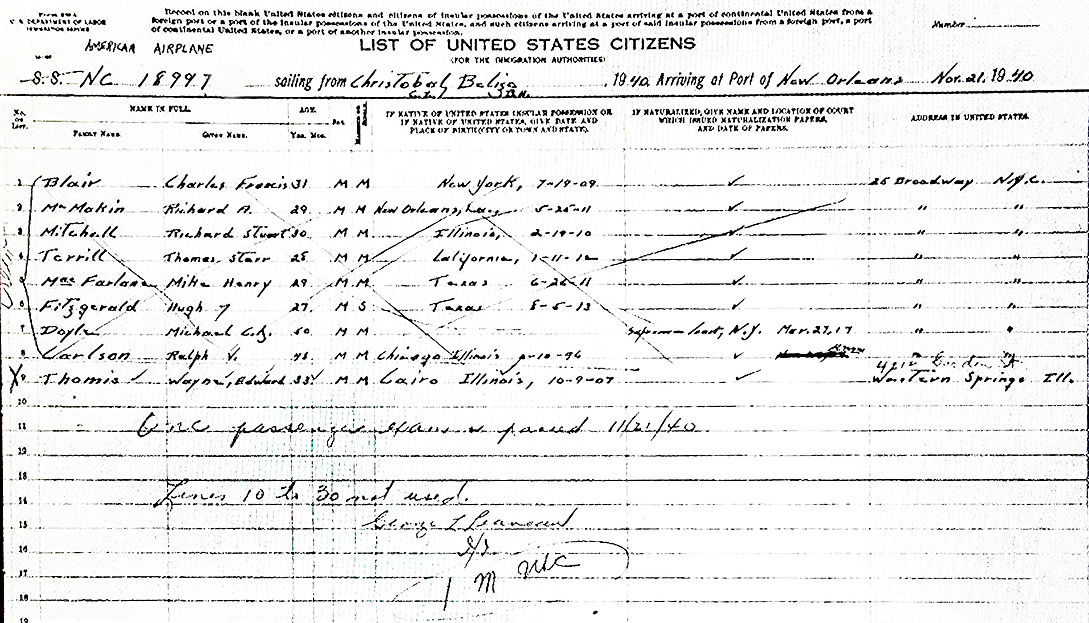 Record on this blank United States citizens and citizens of insular possessions of the United States arriving at a port of continental United States from a
foreign port or a port of the insular possessions of the United States, and such citizens arriving at a port of said insular possessions from a foreign port, a port
of continental United States, or a port of another insular possession.
U. S. DEPARTMENT OF LABOR
IMMIGRATION SERVICE
Number
AMERICAN AIRPLANE
LIST OF UNITED STATES CITIZENS
(FOR THE IMMIGRATION AUTHORITIES)
S.S. NC 18997 sailing from Christobal, C.Z., Belize B.H., 1940, Arriving at Port of New Orleans Nov. 21, 1940
No. on List. NAME IN FULL AGE. Sex IF NATIVE OF UNITED STATES INSULAR POSSESSION OR IF NATIVE OF UNITED STATES, GIVE DATE AND PLACE OF BIRTH (CITY OR TOWN AND STATE). IF NATURALIZED, GIVE NAME AND LOCATION OF COURT WHICH ISSUED NATURALIZATION PAPERS, AND DATE OF PAPERS. ADDRESS IN UNITED STATES.
Family Name. Given Name. Yrs. Mos.
1 Blair Charles Francis 31 M M New York, 7-19-09 ✓ 25 Broadway N.Y.C.
2 McMakin Richard A. 29 M M New Orleans, 5-25-11 ✓ " "
3 Mitchell Richard Stuart 30 M M Illinois, 2-19-10 ✓ " "
4 Terrill Thomas Starr 28 M M California, 1-11-12 ✓ " "
5 MacFarlane Mike Henry 29 M M Texas 6-26-11 ✓ " "
6 Fitzgerald Hugh J 27 M S Texas 8-5-13 ✓ " "
7 Doyle Michael 50 M M Supreme Court, N.Y. Mar. 27, 17 " "
8 Carlson Ralph V. M M Chicago Illinois -10-96 ✓
9 Thomis ✓ Wayne, Edward 33 M M Cairo Illinois, 10-9-07 ✓ Western Springs Ill.
10
11 One passenger exam & passed 11/21/40
12
13 Lines 10 to 30 not used.
14
15 George L
16
17 1 M USC
18
19